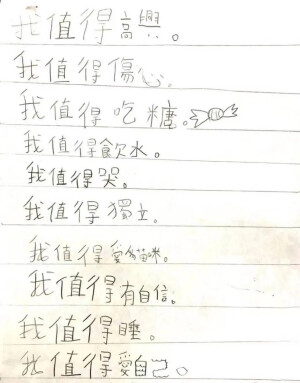 我值得高興。
我值得傷心。
我值得吃糖。
我值得飲水。
我值得哭。
我值得獨立。
我值得愛貓咪。
我值得有自信。
我值得睡。
我值得愛自己。